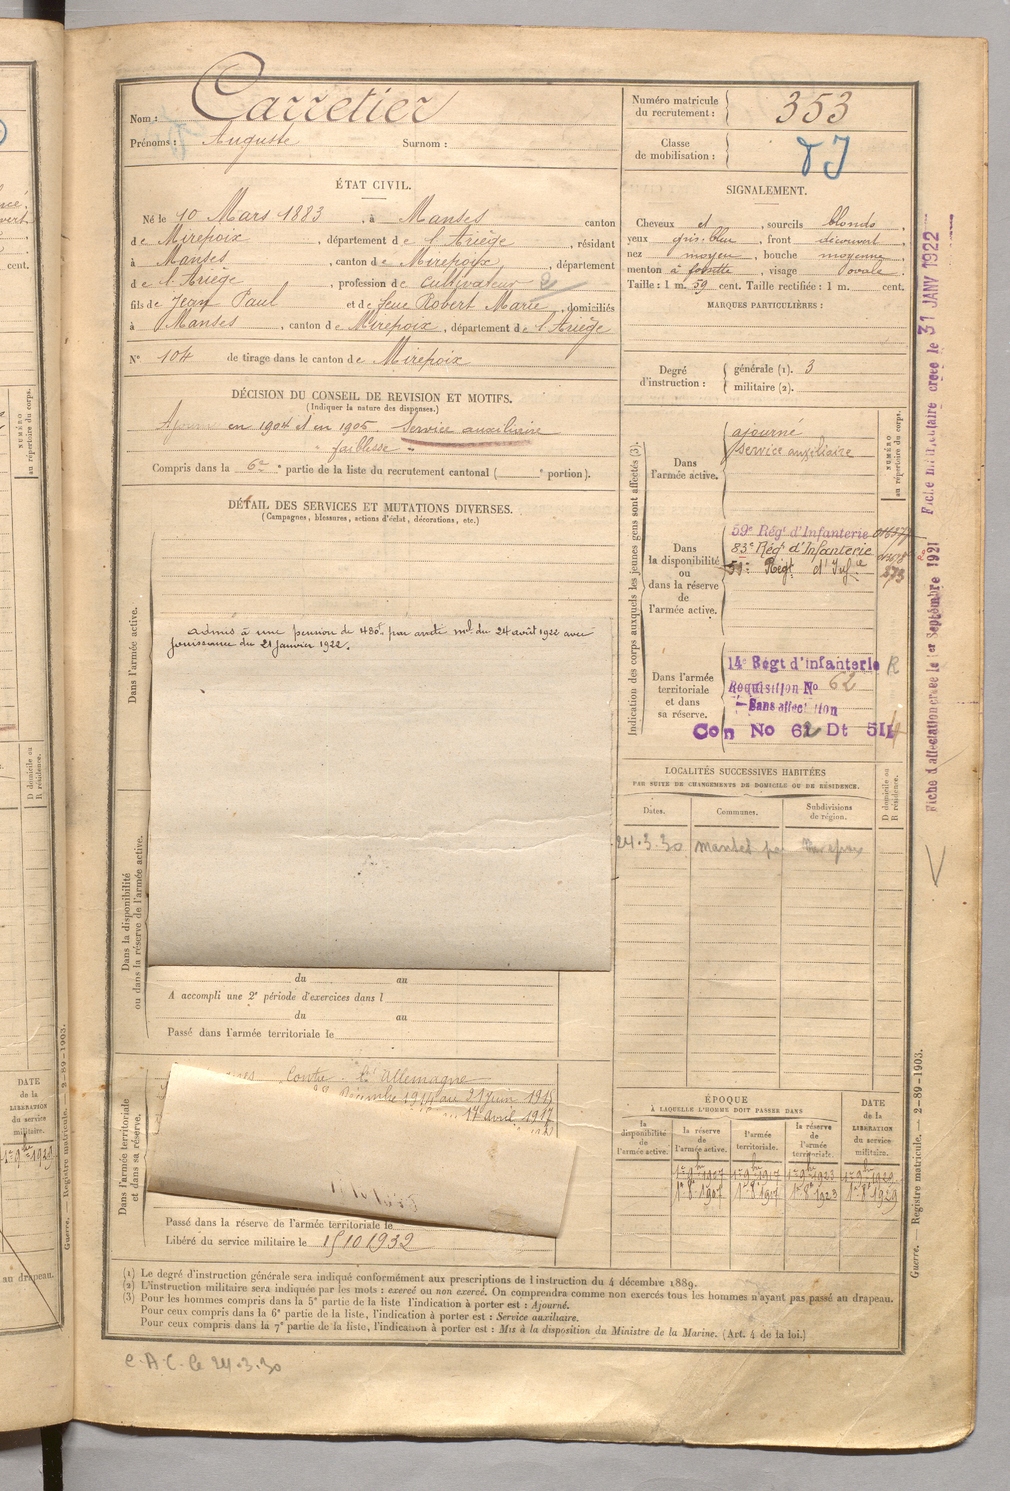 Nom : Carretier
Prénoms : Auguste Surnom :
Numéro matricule du recrutement : 353
Classe de mobilisation :
ÉTAT CIVIL.
Né le 10 Mars 1883, à Manses canton
de Mirepoix, département de l'Ariège, résidant
à Manses, canton de Mirepoix, département
de l'Ariège, profession de cultivateur
fils de Jean Paul et de feue Robert Marie, domiciliés
à Manses, canton de Mirepoix, département de l'Ariège
N° 104 de tirage dans le canton de Mirepoix
SIGNALEMENT.
Cheveux et, sourcils blonds,
yeux gris-bleu, front découvert,
nez moyen, bouche moyenne
menton à fossette, visage ovale.
Taille : 1 m. 59 cent. Taille rectifiée : 1 m. cent.
MARQUES PARTICULIÈRES :
Degré d'instruction : générale (1). 3
militaire (2).
DÉCISION DU CONSEIL DE REVISION ET MOTIFS.
(Indiquer la nature des dispenses.)
Ajourné en 1904 et en 1905. Service auxiliaire
" faiblesse "
Compris dans la 6e partie de la liste du recrutement cantonal ( e portion).
DÉTAIL DES SERVICES ET MUTATIONS DIVERSES.
(Campagnes, blessures, actions d'éclat, décorations, etc.)
Dans l'armée active.
Admis à une pension de 480f par arrêté ml du 24 août 1922 avec
jouissance du 21 janvier 1922.
Dans la disponibilité
ou dans la réserve de l'armée active.
du au
A accompli une 2e période d'exercices dans l
du au
Passé dans l'armée territoriale le
Dans l'armée territoriale
et dans sa réserve.
Contre l'Allemagne
Décembre 1914 au 21 juin 1915
17 avril 1917
Passé dans la réserve de l'armée territoriale le
Libéré du service militaire le 15 10 1932
Indication des corps auxquels les jeunes gens sont affectés (3).
NUMÉRO
au répertoire du corps.
Dans l'armée active.
ajourné
Service auxiliaire
Dans la disponibilité ou dans la réserve de l'armée active.
59e Régt d'Infanterie
83e Régt d'Infanterie
Régt d'Infie
Dans l'armée territoriale et dans sa réserve.
14e Régt d'infanterie R
Requisition No 62
Sans affectation
Con No 62 Dt
LOCALITÉS SUCCESSIVES HABITÉES
PAR SUITE DE CHANGEMENTS DE DOMICILE OU DE RÉSIDENCE.
Dates. Communes. Subdivisions de région.
D domicile ou
R résidence.
24.3.30
ÉPOQUE
À LAQUELLE L'HOMME DOIT PASSER DANS
la disponibilité de l'armée active.
la réserve de l'armée active.
l'armée territoriale.
la réserve de l'armée territoriale.
DATE de la LIBÉRATION du service militaire.
1er 9bre 1907 1er 9bre 1917 1er 9bre 1923 1er 9bre 1929
1er 8bre 1907 1er 8bre 1917 1er 8bre 1923 1er 8bre 1929
(1) Le degré d'instruction générale sera indiqué conformément aux prescriptions de l'instruction du 4 décembre 1889.
(2) L'instruction militaire sera indiquée par les mots : exercé ou non exercé. On comprendra comme non exercés tous les hommes n'ayant pas passé au drapeau.
(3) Pour les hommes compris dans la 5e partie de la liste l'indication à porter est : Ajourné.
Pour ceux compris dans la 6e partie de la liste, l'indication à porter est : Service auxiliaire.
Pour ceux compris dans la 7e partie de la liste, l'indication à porter est : Mis à la disposition du Ministre de la Marine. (Art. 4 de la loi.)
C.A.C. le 24.3.30
Fiche d'affectation créée le 1er Septembre 1921
Fiche matriculaire créée le 31 JANV 1922
Guerre. — Registre matricule. — 2-89-1903.
NUMÉRO
au répertoire du corps.
D domicile ou
R résidence.
DATE
de la
LIBÉRATION
du service
militaire.
Guerre. — Registre matricule. — 2-89-1903.
au drapeau.